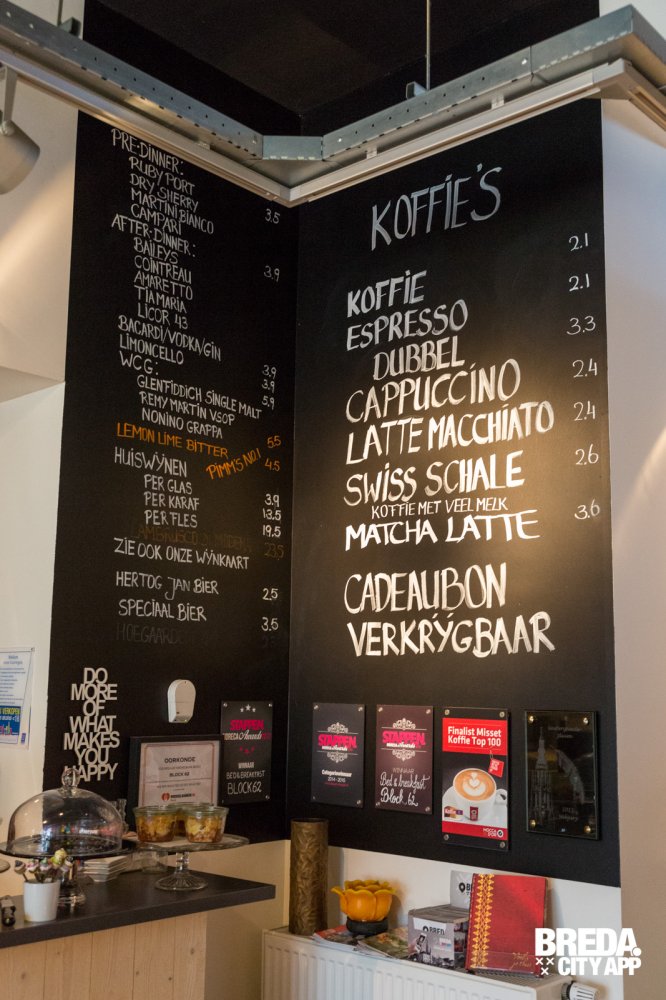 PRE-DINNER:
RUBY PORT
DRY SHERRY
MARTINI BIANCO 3.5
CAMPARI
AFTER-DINNER:
BAILEYS
COINTREAU 3.9
AMARETTO
TIA MARIA
LICOR 43
BACARDI/VODKA/GIN
LIMONCELLO 3.9
WCG: 3.9
GLENFIDDICH SINGLE MALT 5.9
REMY MARTIN VSOP
NONINO GRAPPA
LEMON LIME BITTER 5.5
PIMM'S NO.1 4.5
HUISWŸNEN
PER GLAS 3.9
PER KARAF 13.5
PER FLES 19.5
LAMBRUSCO DI MODENA 23,5
ZIE OOK ONZE WŸNKAART
HERTOG JAN BIER 2.5
SPECIAAL BIER 3.5
HOEGAARDE
KOFFIE'S
KOFFIE 2.1
ESPRESSO 2.1
DUBBEL 3.3
CAPPUCCINO 2.4
LATTE MACCHIATO 2.4
SWISS SCHALE 2.6
KOFFIE MET VEEL MELK
MATCHA LATTE 3.6
CADEAUBON
VERKRŸGBAAR
DO
MORE
OF
WHAT
MAKES
YOU
HAPPY
OORKONDE
BLOCK 62
STAPPEN
HORECA Awards
WINNAAR
BED & BREAKFAST
BLOCK 62
STAPPEN
HORECA Awards
Categoriewinnaar
2014-2015
STAPPEN
HORECA Awards
WINNAAR
Bed & breakfast
Block 62
Finalist Misset
Koffie Top 100
BREDA
CITY APP